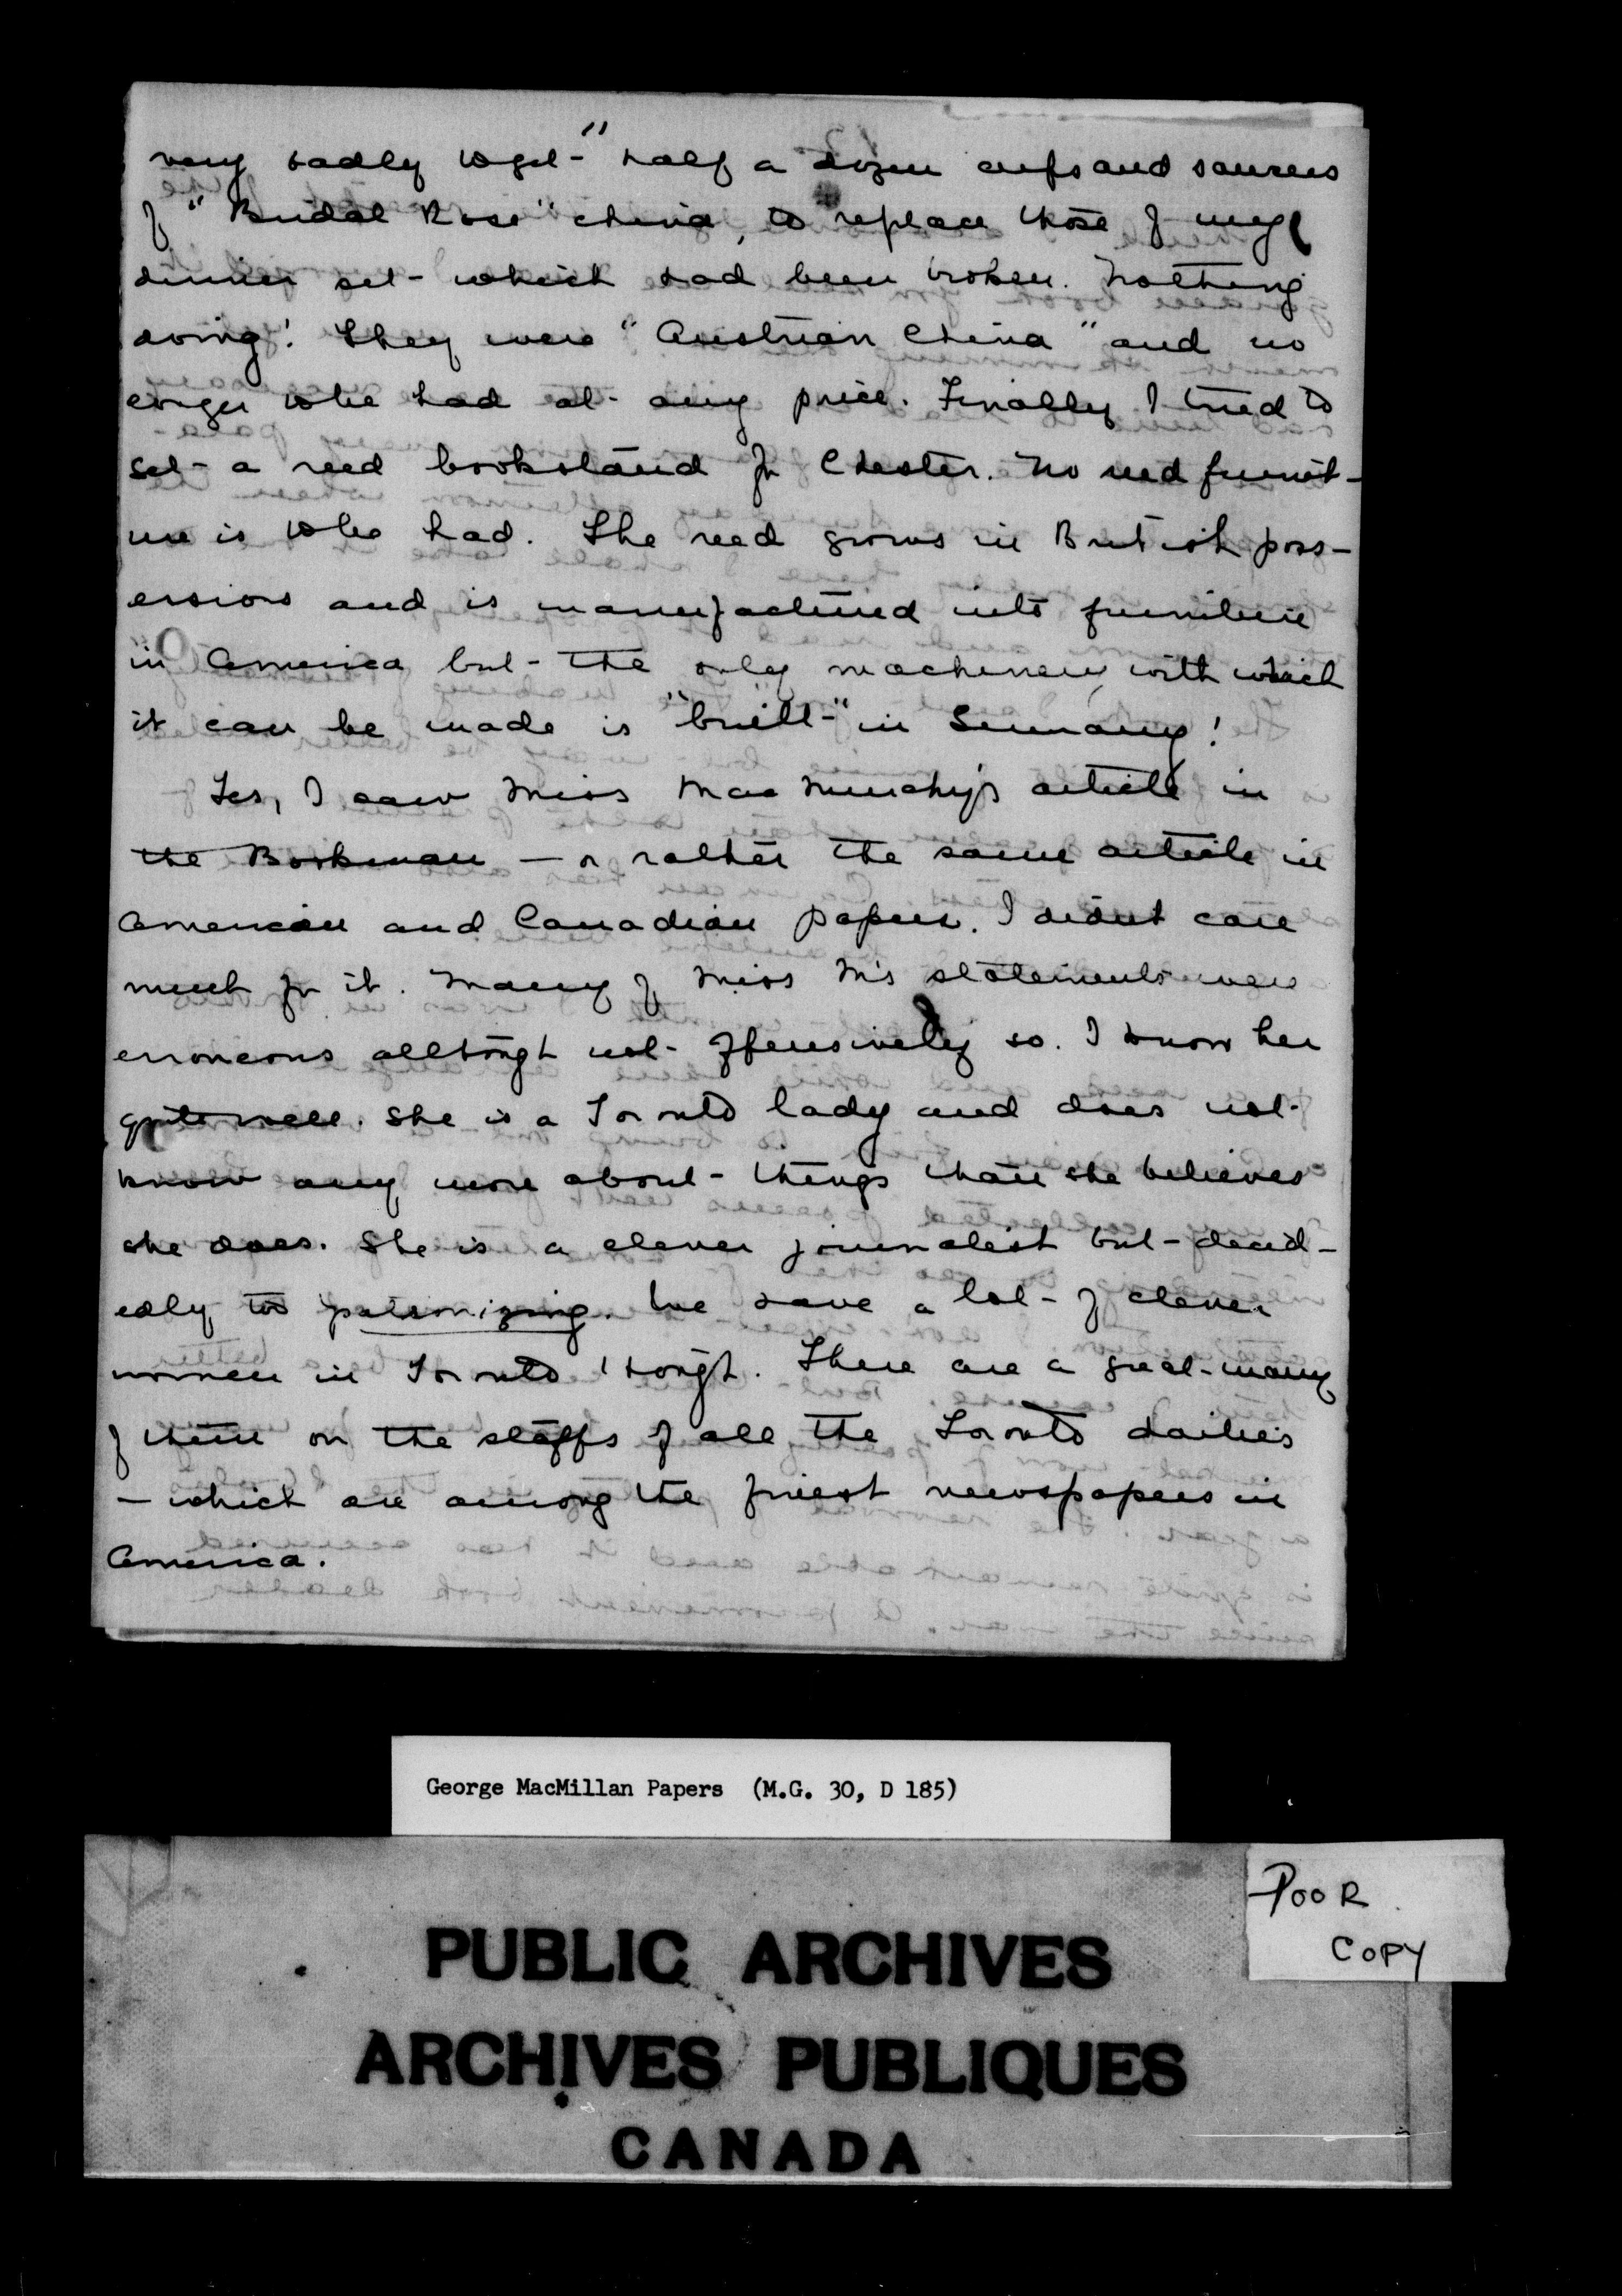 very badly to get - half a dozen cups and saucers
of "Bridal Rose" china, to replace those of my
dinner set - which had been broken. Nothing
doing! They were "Austrian China" and no
longer to be had at any price. Finally I tried to
get a reed bookstand for Chester. No reed furnit-
ure is to be had. The reed grows in British poss-
essions and is manufactured into furniture
in America but the only machinery with which
it can be made is "built" in Germany!
Yes, I saw Miss MacMurchy's article in
the Bookman — or rather the same article in
American and Canadian papers. I didn't care
much for it. Many of Miss M's statements were
erroneous although not offensively so. I know her
quite well. She is a Toronto lady and does not
know any more about things than she believes
she does. She is a clever journalist but decid-
edly too patronizing. We have a lot of clever
women in Toronto though. There are a great many
of them on the staffs of all the Toronto dailies
— which are among the finest newspapers in
America.
George MacMillan Papers (M.G. 30, D 185)
POOR
COPY
PUBLIC ARCHIVES
ARCHIVES PUBLIQUES
CANADA